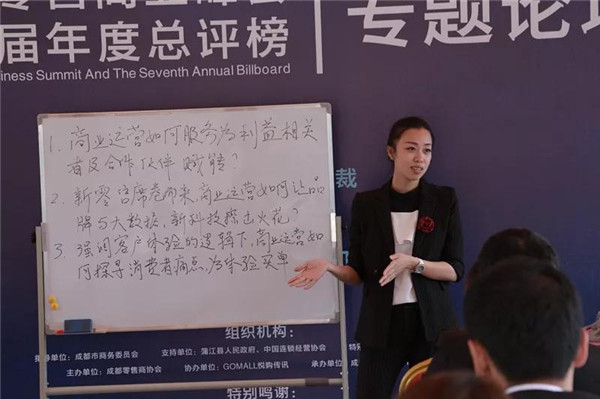 零售商业峰会
届年度总评榜
iness Summit And The Seventh Annual Billboard
专题论坛
裁
1. 商业运营如何服务为利益相关
者及合作伙伴赋能？
2. 新零售席卷而来，商业运营如何让品
牌与大数据、新科技擦出火花？
3. 强调客户体验的逻辑下，商业运营如
何探寻消费者痛点，为体验买单
组织机构：
指导单位：成都市商务委员会
支持单位：蒲江县人民政府、中国连锁经营协会
特别
主办单位：成都零售商协会
协办单位：GOMALL悦购传讯
承办单位：成
特别鸣谢：